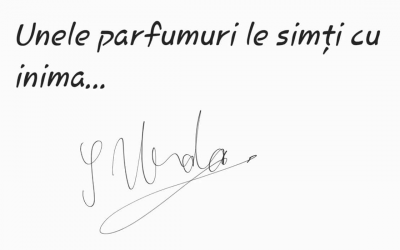 Unele parfumuri le simți cu
inima...